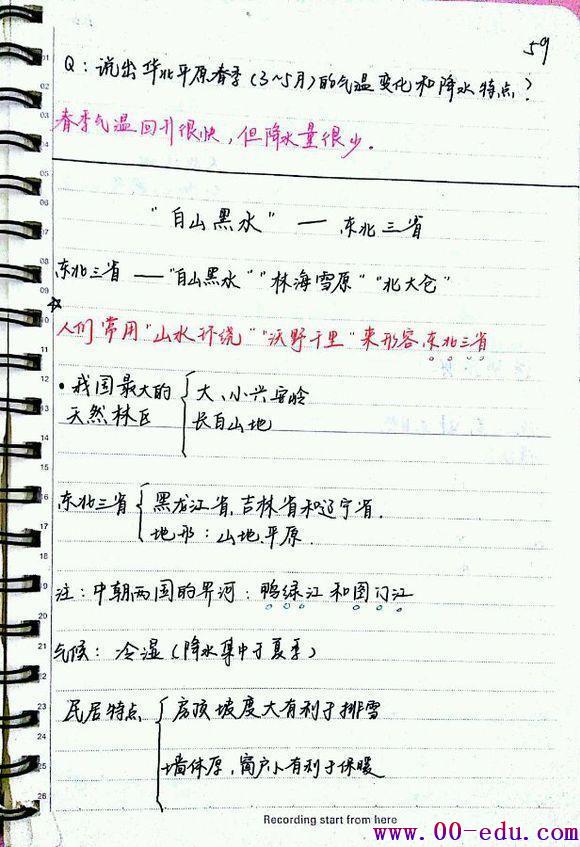 59
Q：说出华北平原春季（3~5月）的气温变化和降水特点？
春季气温回升很快，但降水量很少。
“白山黑水” — 东北三省
东北三省 —“白山黑水”“林海雪原”“北大仓”
☆
人们常用“山水环绕”“沃野千里”来形容东北三省
·我国最大的 { 大、小兴安岭
天然林区 长白山地
东北三省 { 黑龙江省，吉林省和辽宁省．
地形：山地、平原．
注：中朝两国的界河：鸭绿江和图们江
气候：冷湿（降水集中于夏季）
民居特点 { 房顶坡度大有利于排雪
墙体厚，窗户小有利于保暖
Recording start from here
www.00-edu.com